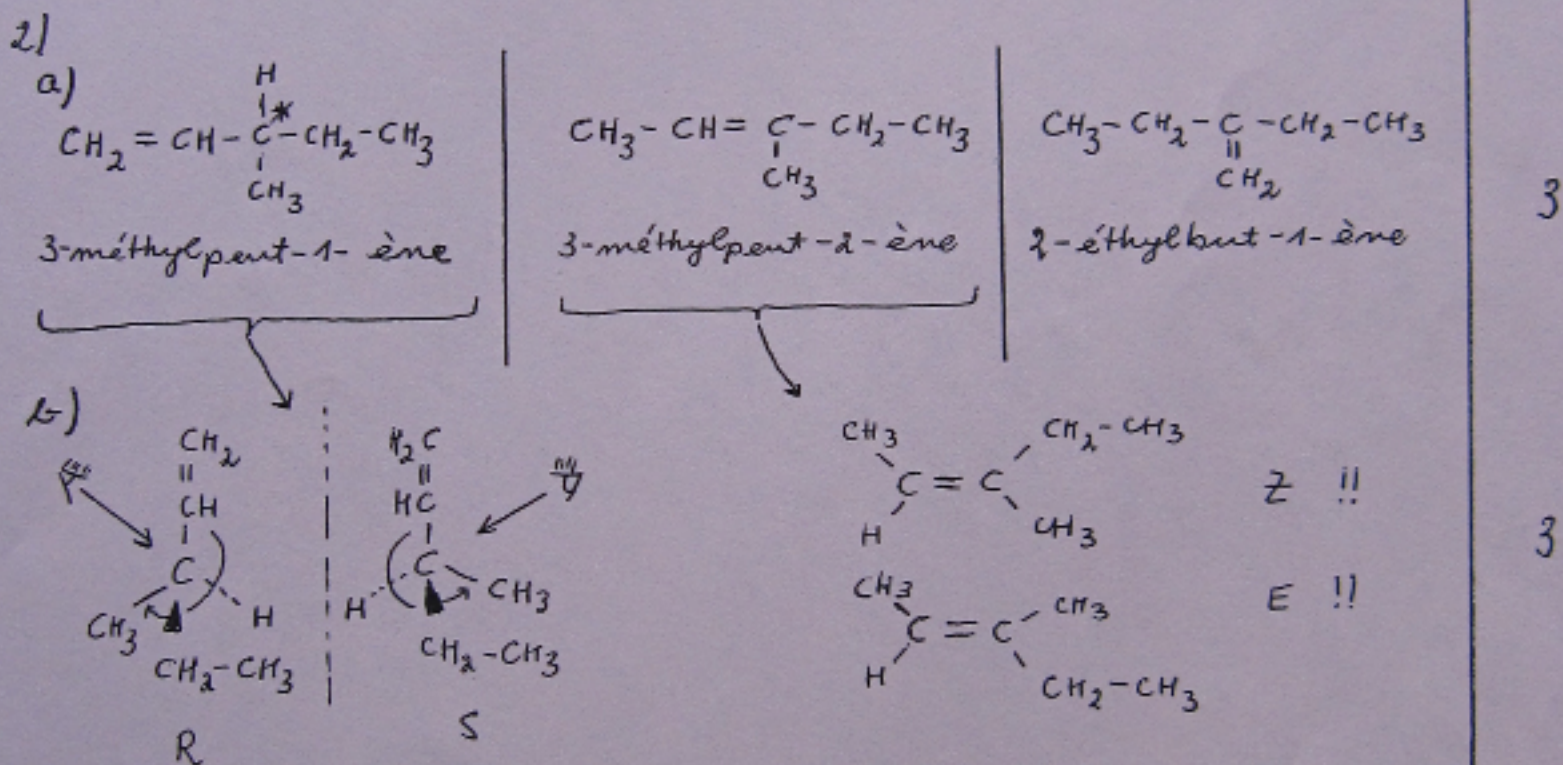 2)
a)
H
CH2 = CH - C* - CH2 - CH3
CH3
3-méthylpent-1-ène
CH3 - CH = C - CH2 - CH3
CH3
3-méthylpent-2-ène
CH3 - CH2 - C - CH2 - CH3
CH2
2-éthylbut-1-ène
3
b)
CH2
CH
C
CH3
H
CH2-CH3
R
H2C
HC
C
H
CH3
CH2-CH3
S
CH3
CH2-CH3
C = C
H
CH3
Z !!
CH3
CH3
C = C
H
CH2-CH3
E !!
3